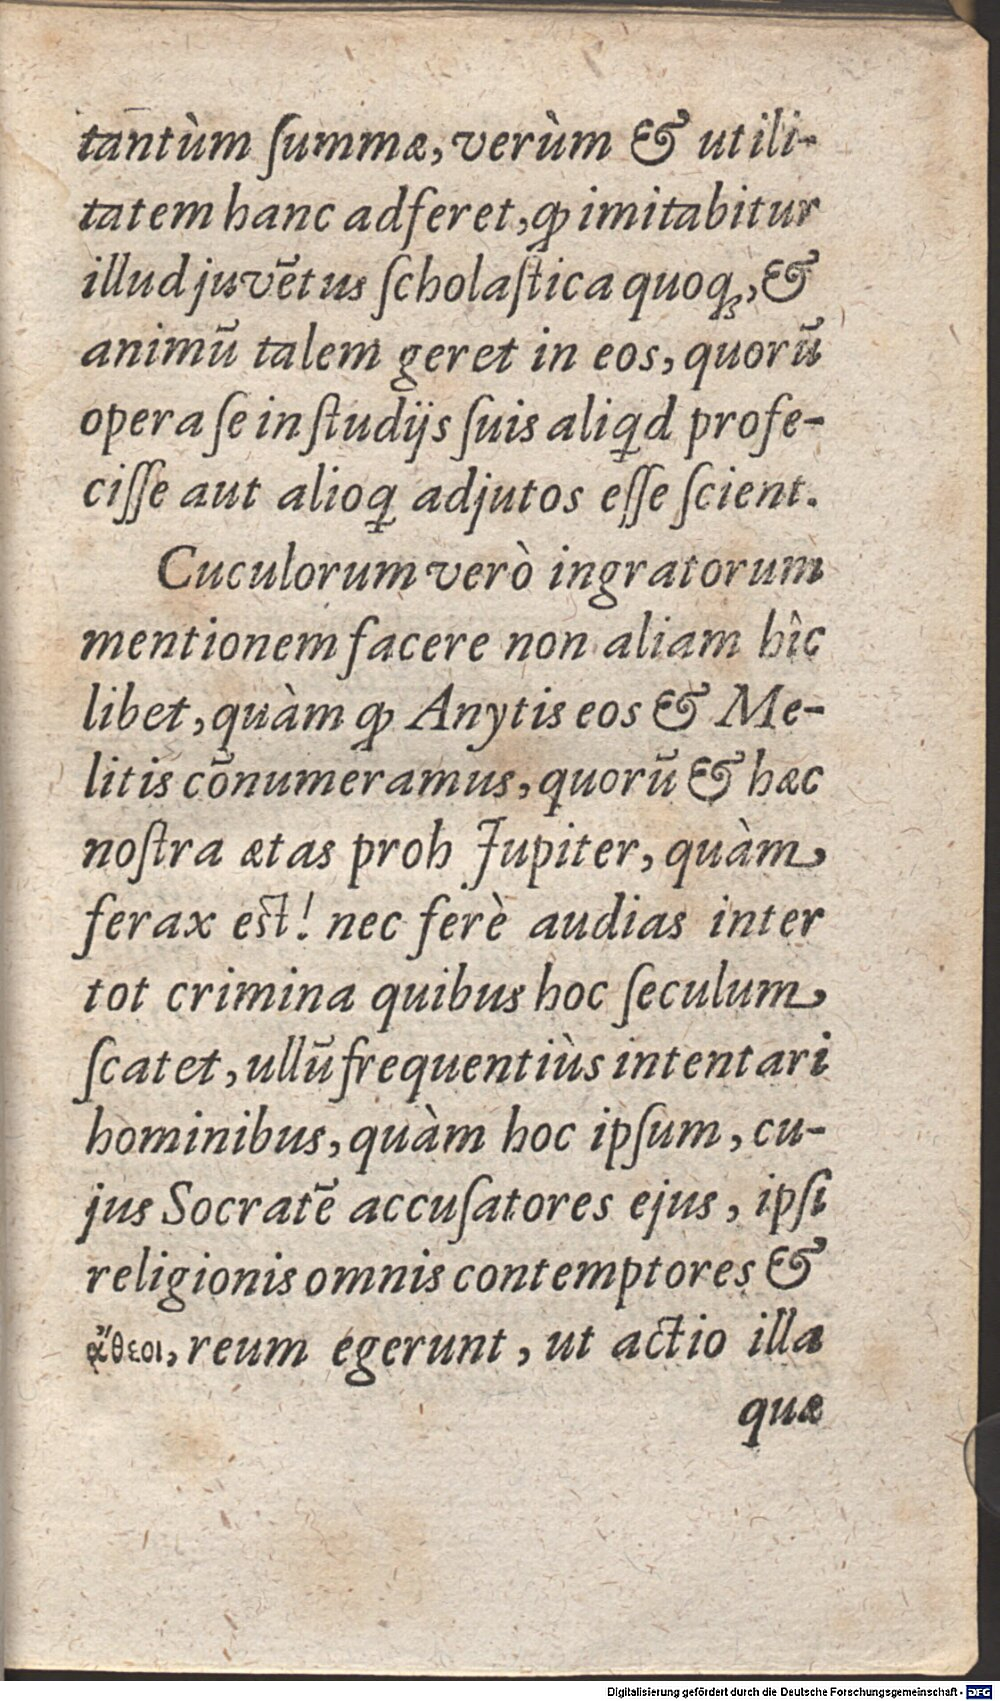 tantùm ſummæ, verùm & utili-
tatem hanc adferet, ꝙ imitabitur
illud juvẽtus ſcholaſtica quoqꝫ, &
animũ talem geret in eos, quorũ
opera ſe in ſtudijs ſuis aliꝗd profe-
ciſſe aut alioꝗ adjutos eſſe ſcient.
Cuculorum verò ingratorum
mentionem facere non aliam hîc
libet, quàm ꝙ Anytis eos & Me-
litis cõnumeramus, quorũ & hæc
noſtra ætas proh Jupiter, quàm
ferax eſt! nec ferè audias inter
tot crimina quibus hoc ſeculum
ſcatet, ullũ frequentiùs intentari
hominibus, quàm hoc ipſum, cu-
jus Socratẽ accuſatores ejus, ipſi
religionis omnis contemptores &
ἄθεοι, reum egerunt, ut actio illa
quæ
Digitalisierung gefördert durch die Deutsche Forschungsgemeinschaft - DFG